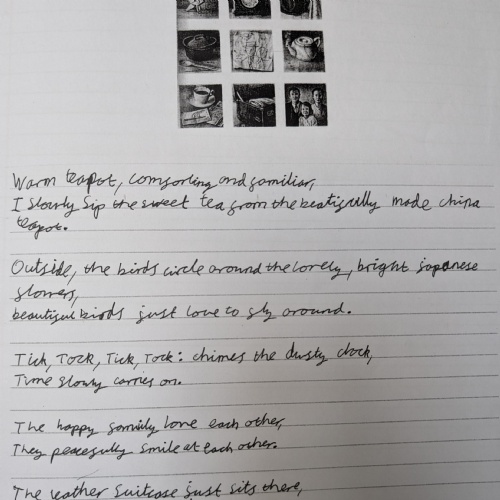 Warm teapot, comforting and familiar,
I slowly sip the sweet tea from the beatifully made china
teapot.
Outside, the birds circle around the lovely, bright japanese
flowers,
beautiful birds just love to fly around.
Tick, Tock, Tick, Tock: chimes the dusty clock,
Time slowly carries on.
The happy family love each other,
They peacefully smile at each other.
The leather suitcase just sits there,